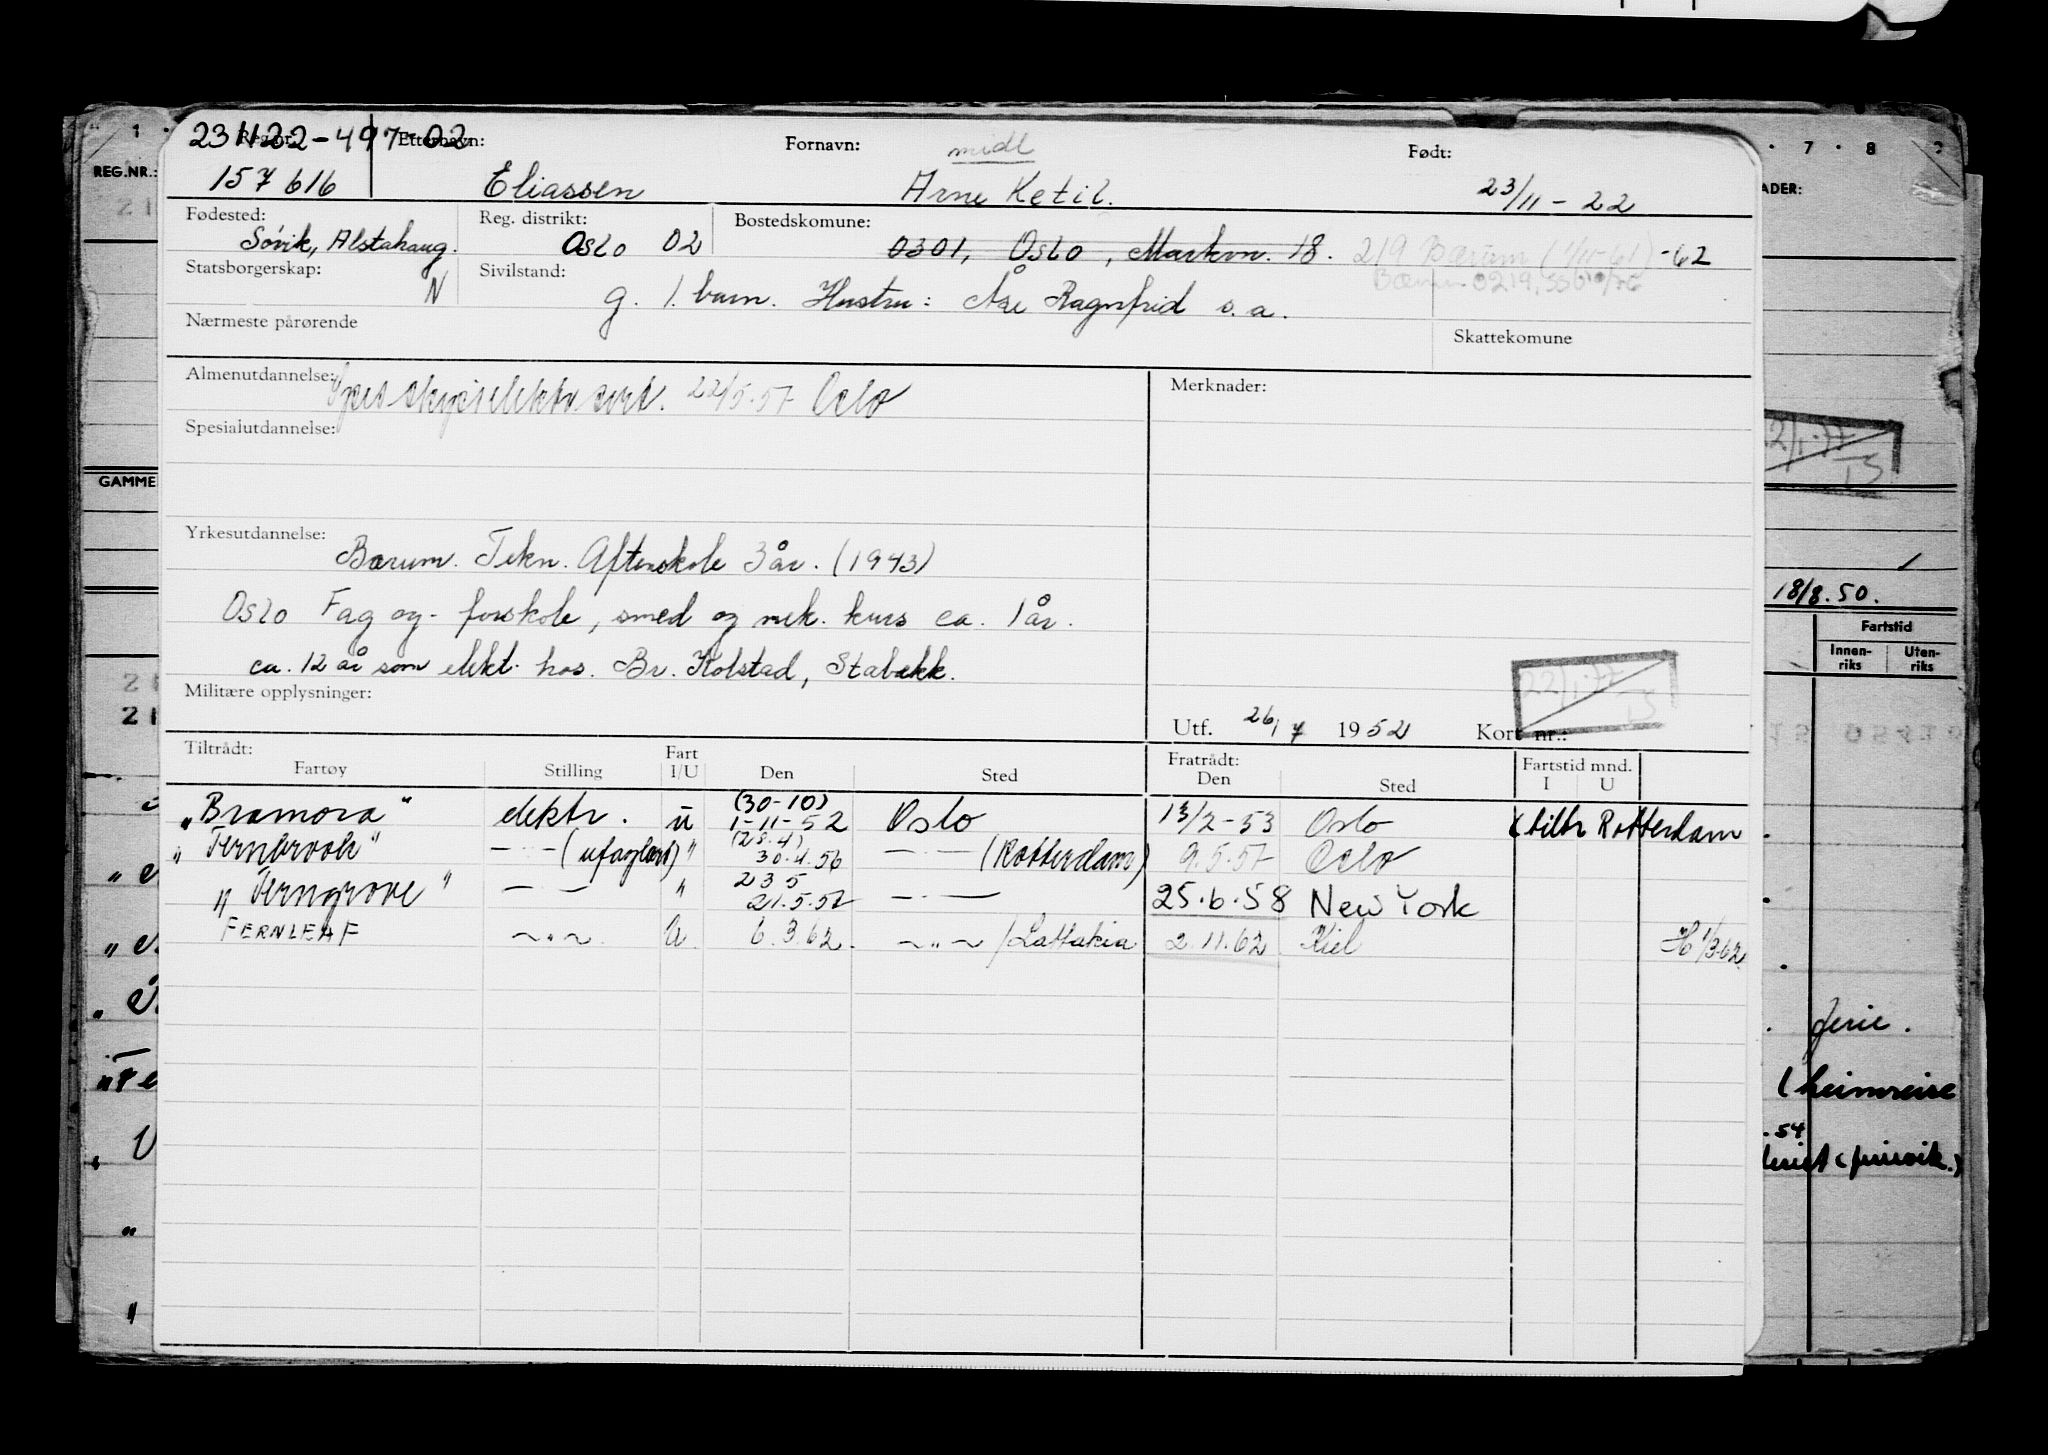 231122-497-02
Reg.nr. Etternavn: Fornavn: midl Født:
157616 Eliassen Arne Ketil. 23/11-22
Fødested: Reg. distrikt: Bostedskomune:
Søvik, Alstahaug. Oslo 02 0301, Oslo, Markvn. 18. 219 Bærum (1/11-61) -62
Bærum 0219,
Statsborgerskap: Sivilstand:
N g. 1. barn. Hustru: Åse Ragnfrid s.a.
Nærmeste pårørende Skattekomune
Almenutdannelse: skipselektr. sert. 22/5.57 Oslo Merknader:
Spesialutdannelse:
Yrkesutdannelse:
Bærum. Tekn. Aftenskole 3 år. (1943)
Oslo Fag og- forskole, smed og mek. kurs ca. 1 år.
ca. 12 år som elekt. hos. Br. Kolstad, Stabekk.
Militære opplysninger:
22/1.77
TS
Utf. 26/7 1952 Kort nr.:
Tiltrådt: Fart Fratrådt: Fartstid mnd.
Fartøy Stilling I/U Den Sted Den Sted I U
(30-10)
"Bramora" elektr. u 1-11-52 Oslo 13/2-53 Oslo (tiltr Rotterdam
(28.4)
"Fernbrook" —"— (ufaglært) " 30.4.56 —"— (Rotterdam) 9.5.57 Oslo
23 5
"Ferngrove" —"— " 21.5.57 —"— 25.6.58 New York
FERNLEAF ~"~. U. 6.3.62. ~"~ /Lattakia 2.11.62 Kiel H 1/3-62
REG.NR.:
21
GAMME
21
21
7 · 8
ADER:
22/1.77
TS
18/8.50.
Fartstid
Innen-
riks
Uten-
riks
ferie.
(heimreise
.54